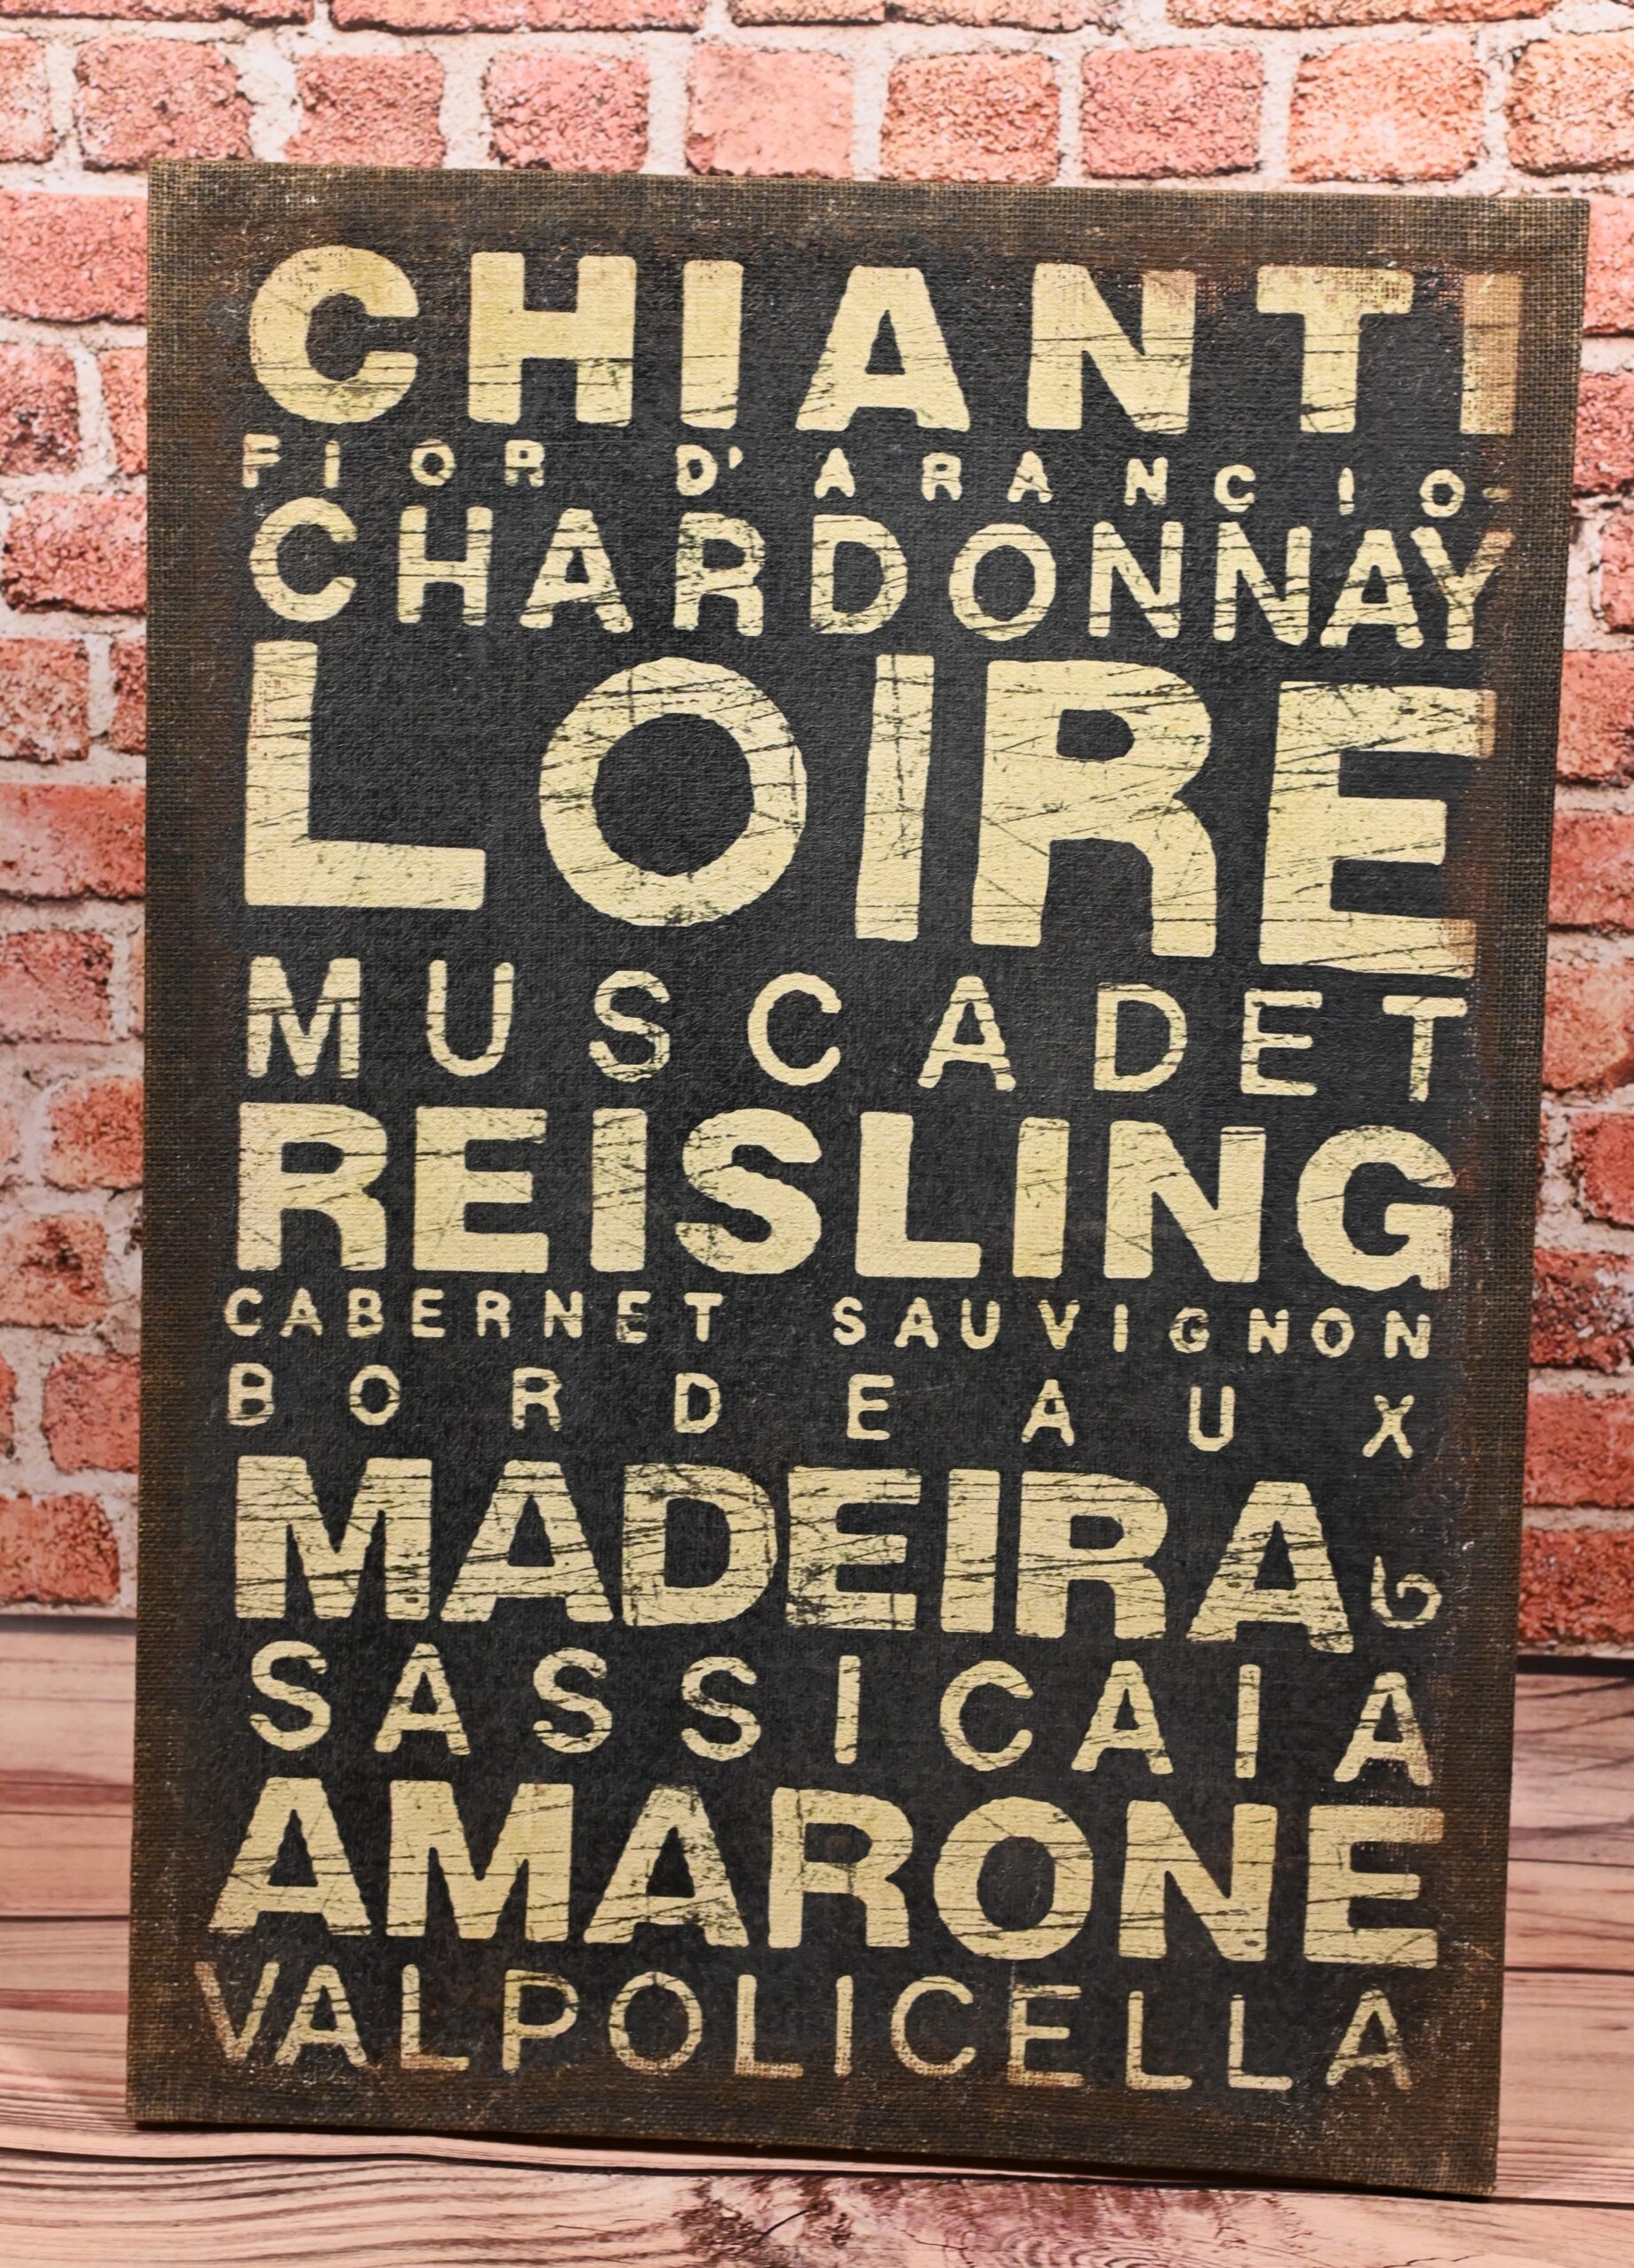 CHIANTI
FIOR D'ARANCIO
CHARDONNAY
LOIRE
MUSCADET
REISLING
CABERNET SAUVIGNON
BORDEAUX
MADEIRA
SASSICAIA
AMARONE
VALPOLICELLA